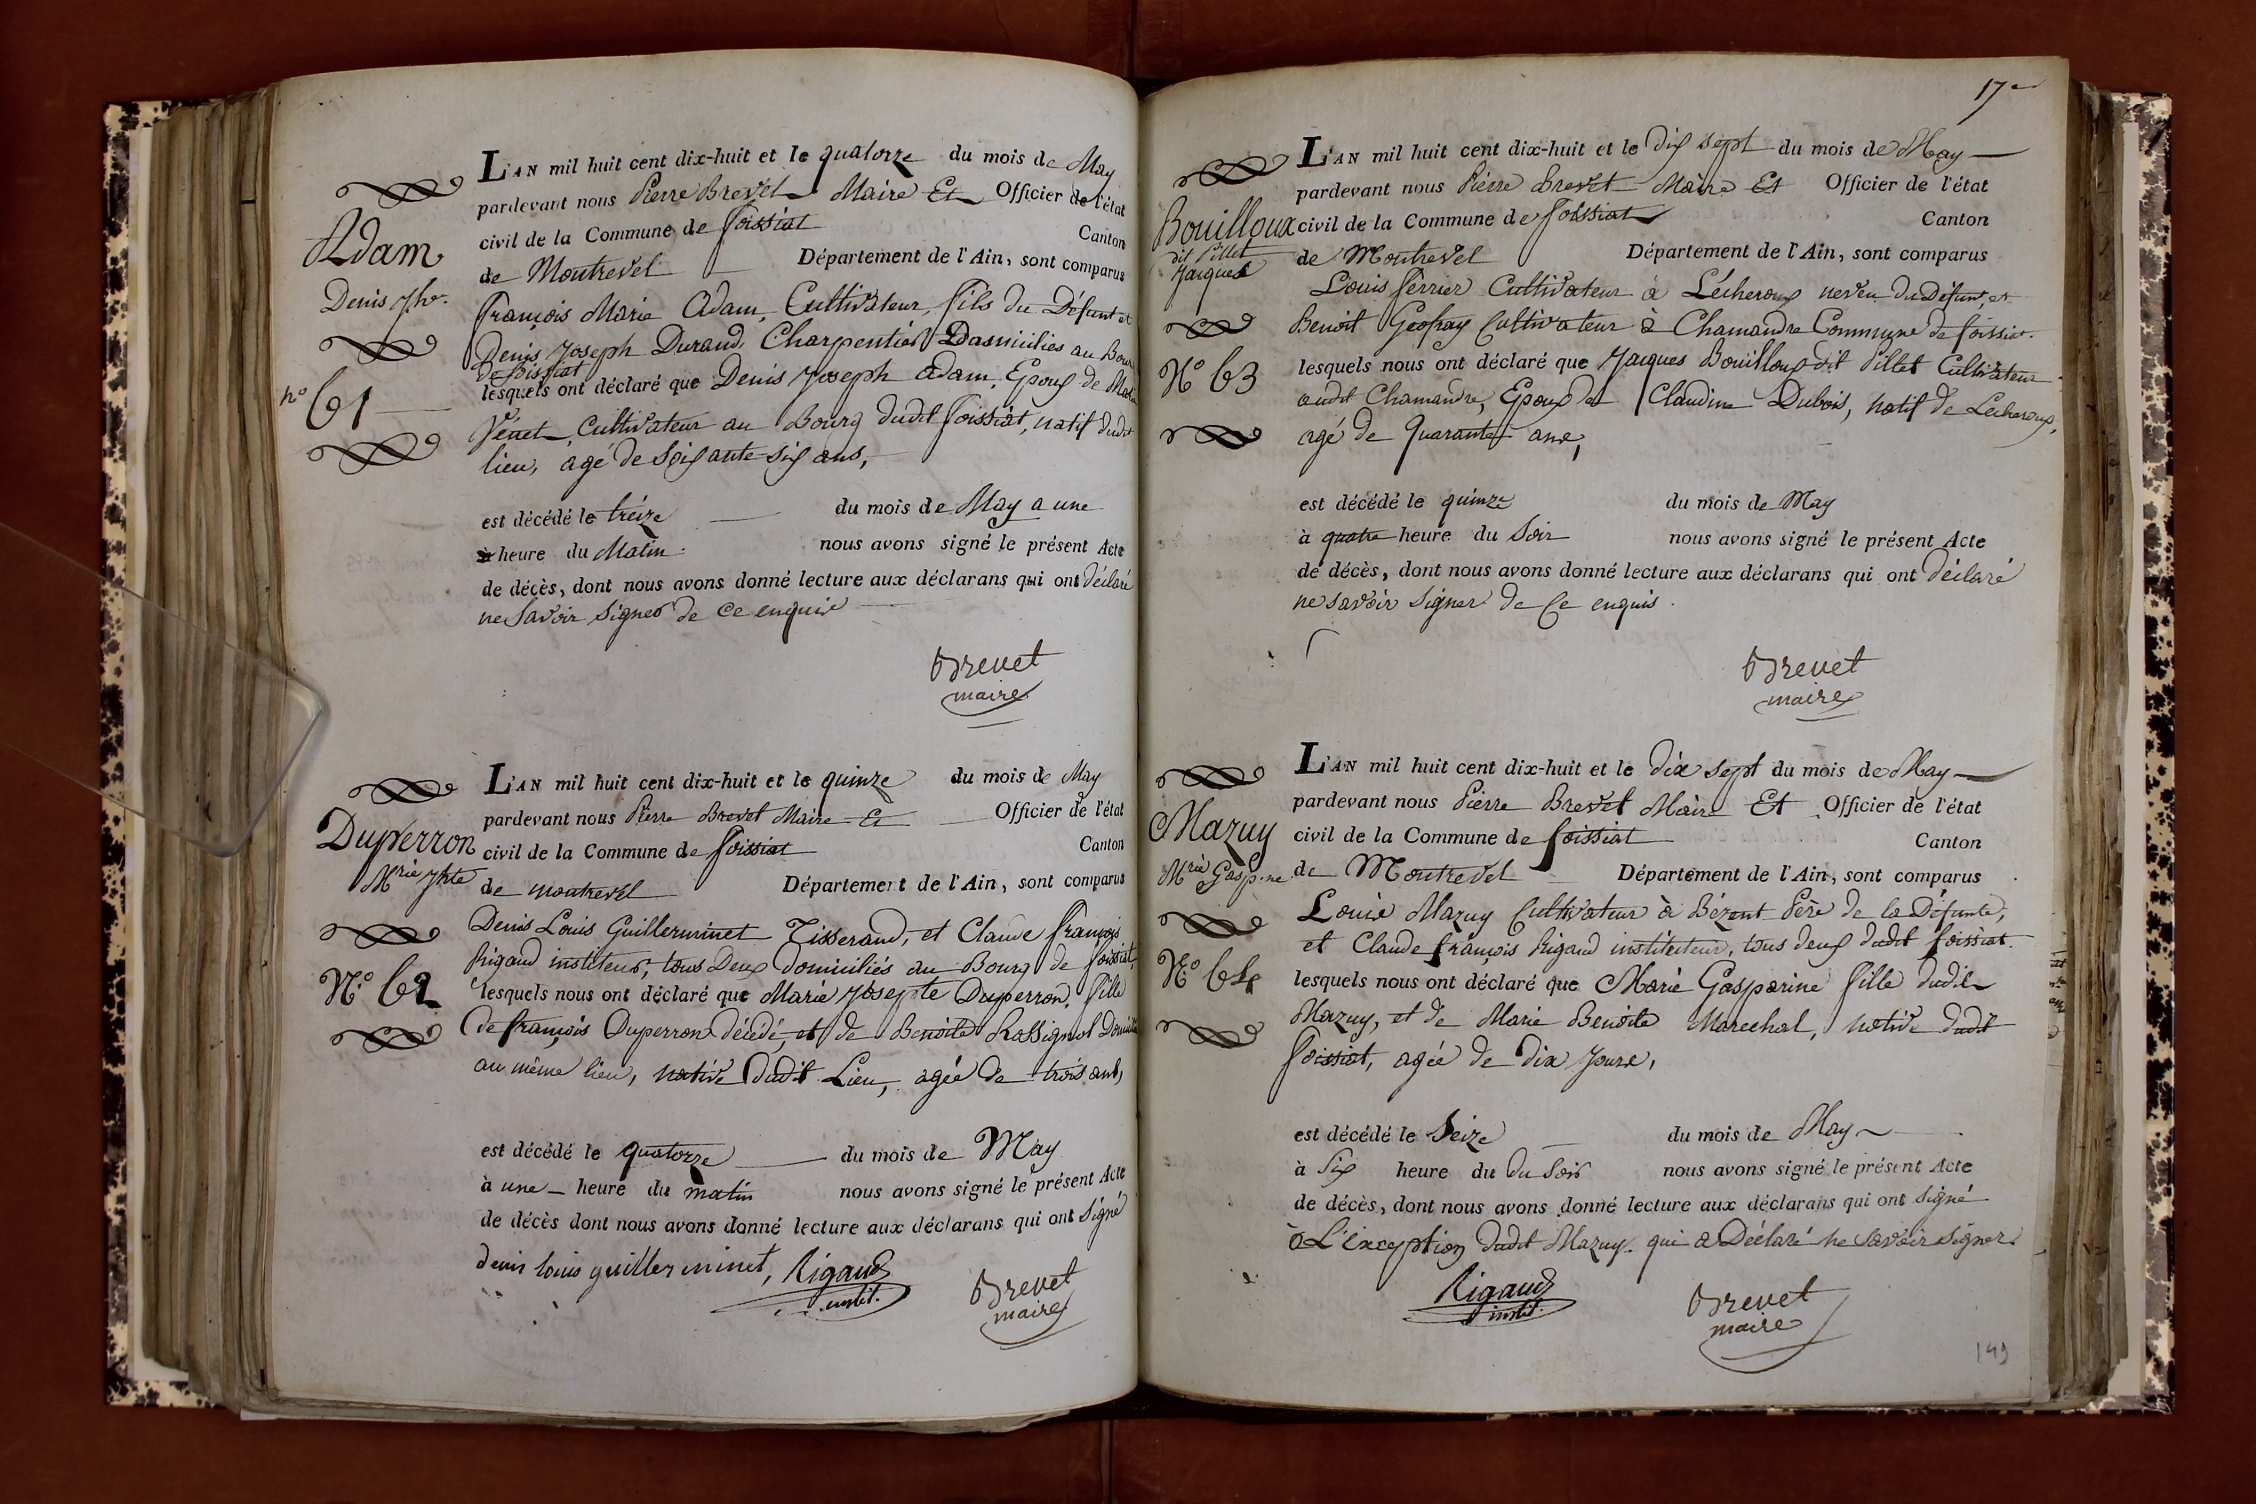 L'AN mil huit cent dix-huit et le quatorze du mois de May
pardevant nous Pierre Brevet Maire Et Officier de l'état
civil de la Commune de foissiat Canton
de Montrevel Département de l'Ain, sont comparus
Adam
Denis Jph.
n° 61
françois Marie Adam, Cultivateur, fils du Défunt et
Denis Joseph Durand, Charpentier Domiciliés au Bourg
de foissiat
lesquels ont déclaré que Denis Joseph Adam, Epoux de Marie
Vénet, Cultivateur au Bourg dudit foissiat, natif dudit
lieu, agé de soixante six ans,
est décédé le treize du mois de May a une
à heure du Matin nous avons signé le présent Acte
de décès, dont nous avons donné lecture aux déclarans qui ont déclaré
ne savoir signer de ce enquis
Brevet
maire
L'AN mil huit cent dix-huit et le quinze du mois de May
pardevant nous Pierre Brevet Maire Et Officier de l'état
civil de la Commune de foissiat Canton
de montrevel Département de l'Ain, sont comparus
Duperron
Mrie Jphte
N° 62
Denis Louis Guillerminet Tisserand, et Claude françois
Rigaud instituteur, tous Deux domiciliés au Bourg de foissiat,
lesquels nous ont déclaré que Marie Josepte Duperron, fille
de françois Duperron décédé et de Benoite Rossignol Domiciliée
au même lieu, native dudit Lieu, agée de trois ans,
est décédé le quatorze du mois de May
à une heure du matin nous avons signé le présent Acte
de décès dont nous avons donné lecture aux déclarans qui ont signé
denis louis guillerminet, Rigaud
instit.
Brevet
maire
17e
L'AN mil huit cent dix-huit et le dix sept du mois de May
pardevant nous Pierre Brevet Maire Et Officier de l'état
civil de la Commune de foissiat Canton
de Montrevel Département de l'Ain, sont comparus
Bouilloux
dit Pillet
Jacques
N° 63
Louis ferrier Cultivateur à Lécheroux neveu du Défunt, et
Benoit Geofray Cultivateur à Chamandre Commune de foissiat.
lesquels nous ont déclaré que Jacques Bouilloux dit Pillet Cultivateur
audit Chamandre, Epoux de Claudine Dubois, natif de Lecheroux,
agé de quarante ans,
est décédé le quinze du mois de May
à quatre heure du Soir nous avons signé le présent Acte
de décès, dont nous avons donné lecture aux déclarans qui ont déclaré
ne savoir signer de Ce enquis.
Brevet
maire
L'AN mil huit cent dix-huit et le dix sept du mois de May
pardevant nous Pierre Brevet Maire Et Officier de l'état
civil de la Commune de foissiat Canton
de Montrevel Département de l'Ain, sont comparus
Mazuy
Mrie Gaspine
N° 64
Louis Mazuy Cultivateur à Bézent Père de la Défunte,
et Claude françois Rigaud instituteur, tous deux dudit foissiat.
lesquels nous ont déclaré que Marie Gasparine fille dudit
Mazuy, et de Marie Benoite Marechal, native dudit
foissiat, agée de dix Jours,
est décédé le Seize du mois de May
à Six heure du du Soir nous avons signé le présent Acte
de décès, dont nous avons donné lecture aux déclarans qui ont signé
à L'exception dudit Mazuy qui a Déclaré ne savoir signer.
Rigaud
instit.
Brevet
maire
149